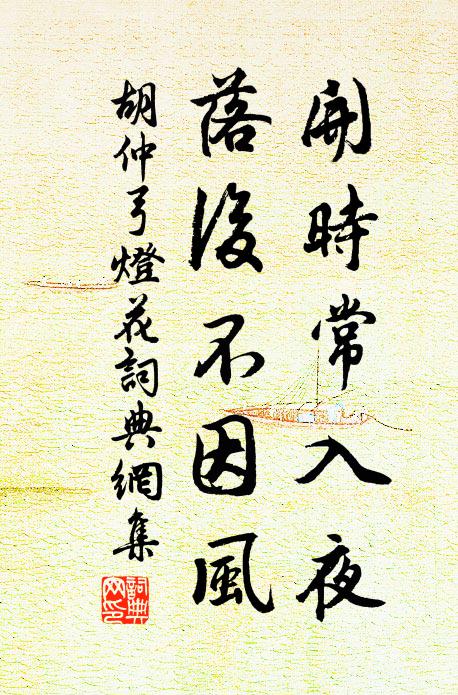 開時常入夜
落後不因風
胡仲弓燈花詞典網集
詞典
网印